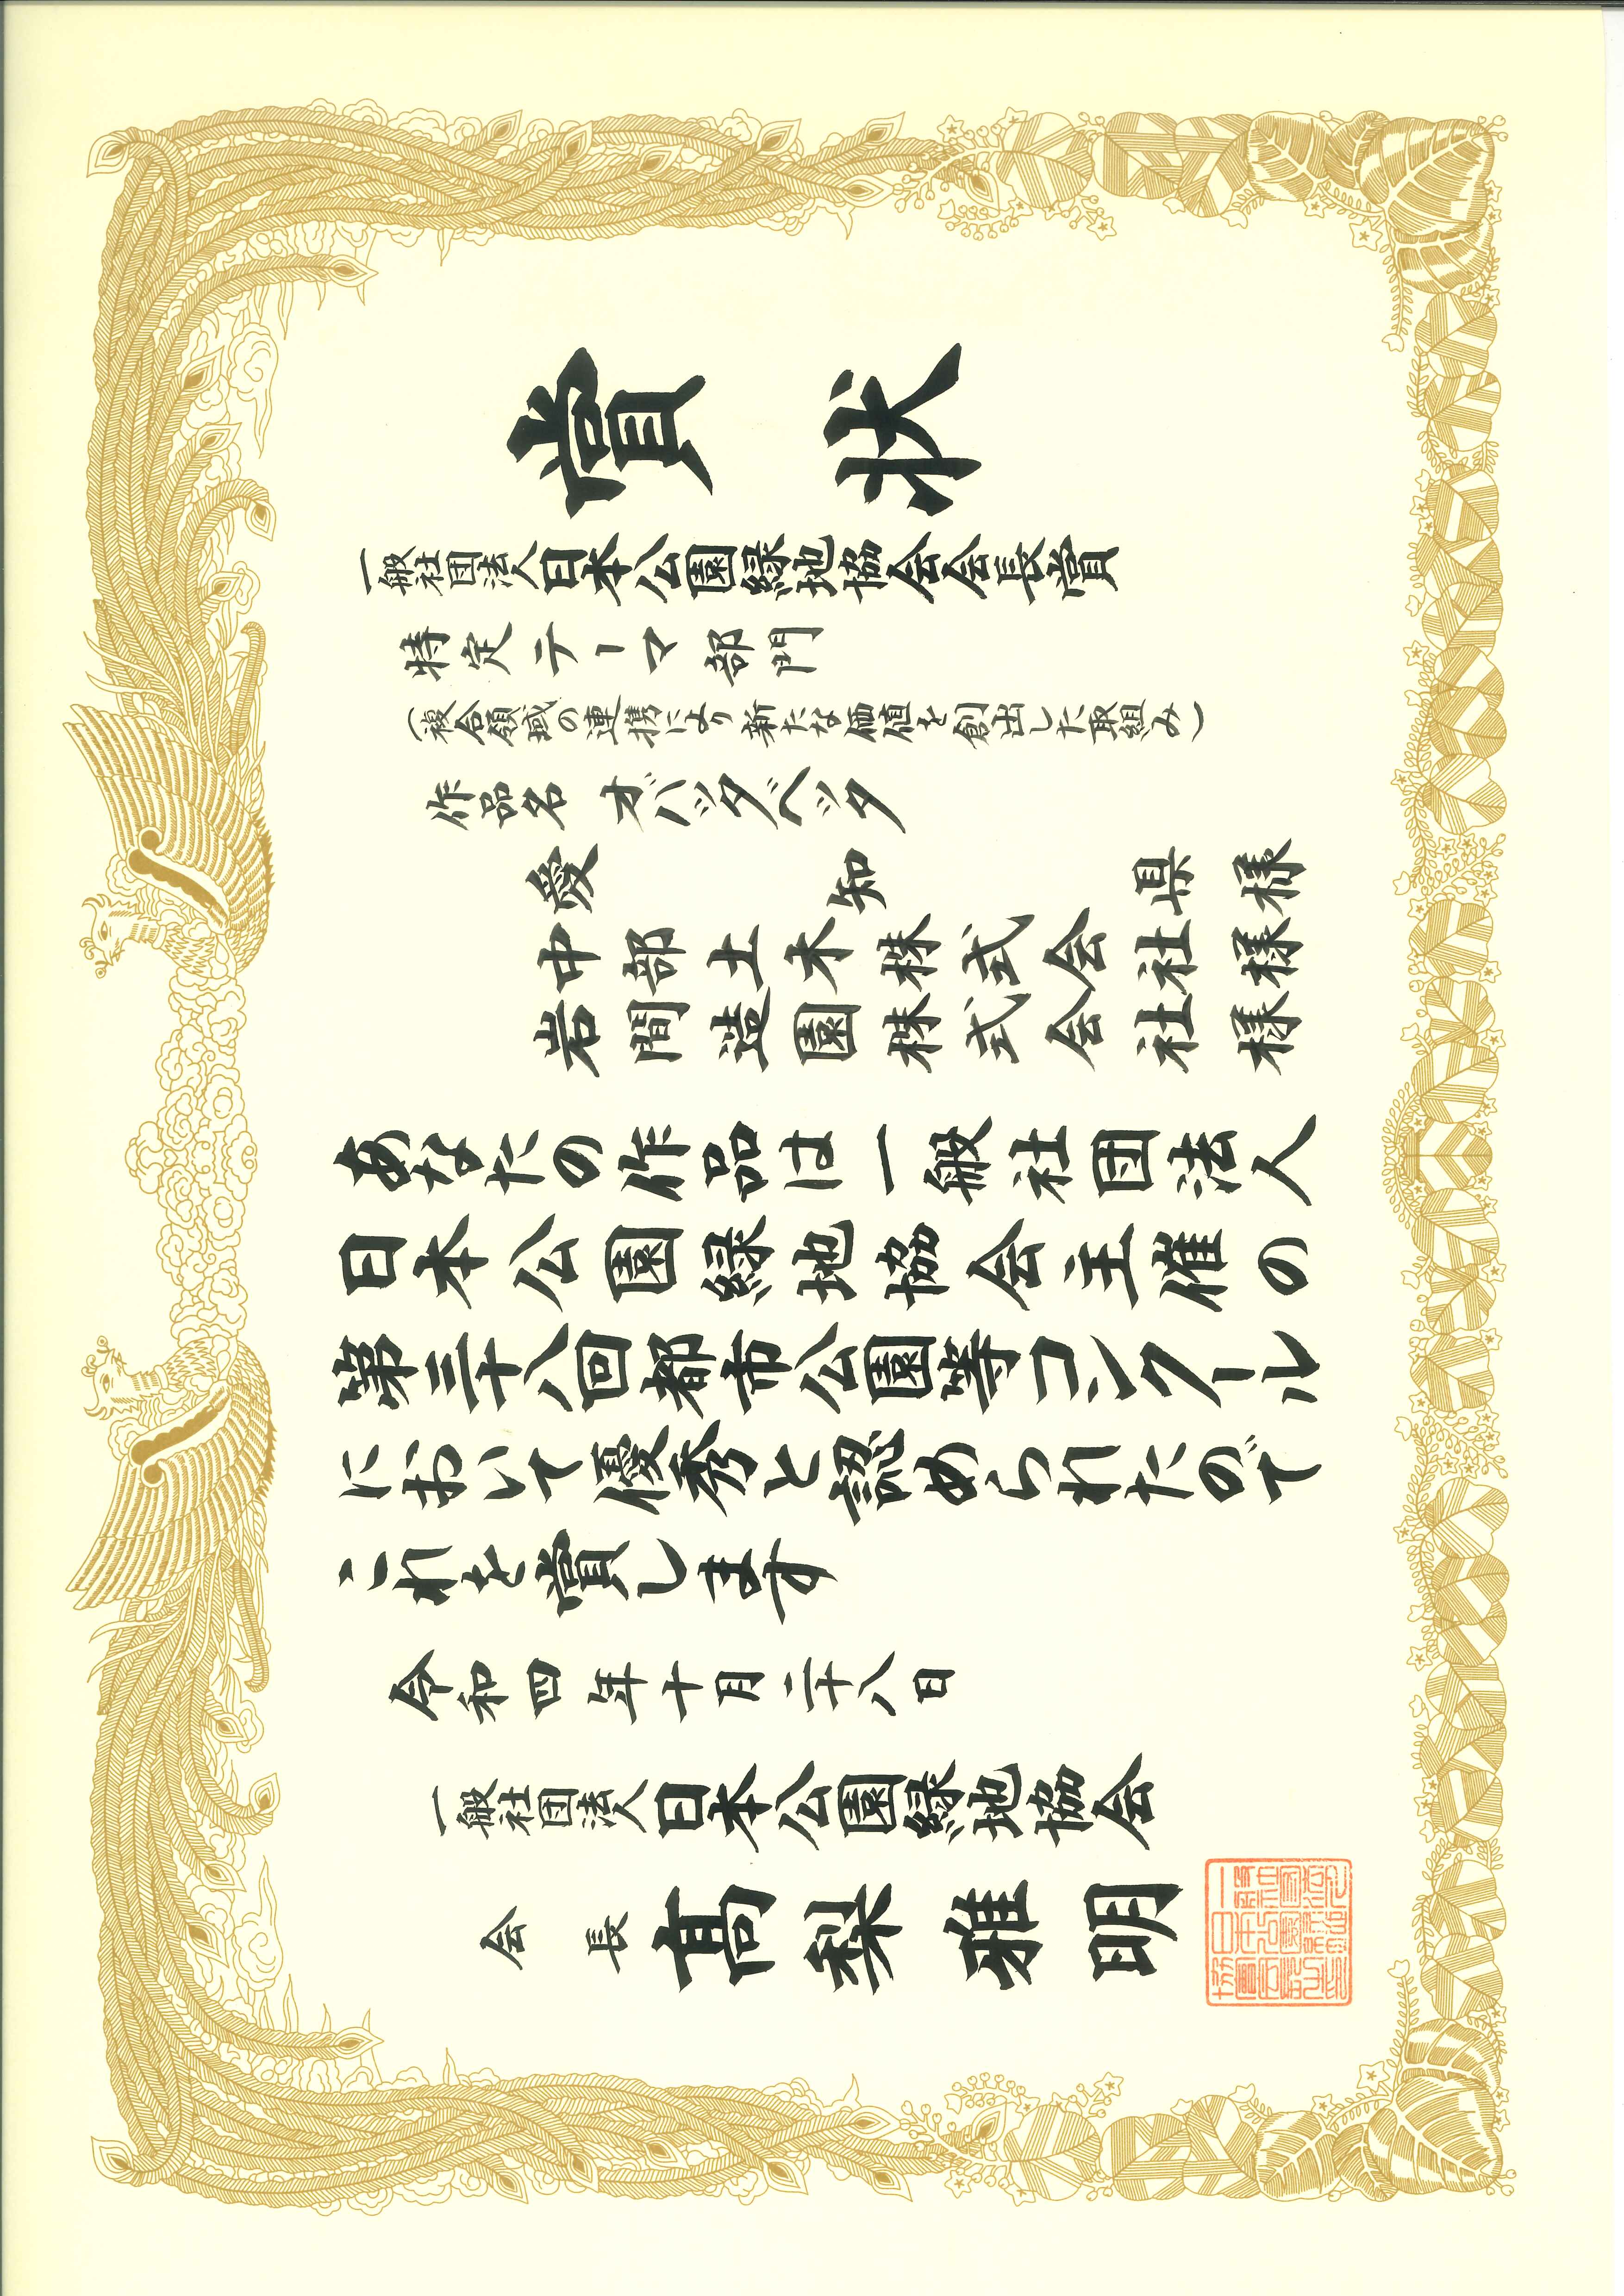 賞状
一般社団法人日本公園緑地協会会長賞
特定テーマ部門
(複合領域の連携により新たな価値を創出した取組み)
作品名 オバッタベッタ
愛知県様
中部土木株式会社様
岩間造園株式会社様
あなたの作品は一般社団法人
日本公園緑地協会主催の
第三十八回都市公園等コンクール
において優秀と認められたので
これを賞します
令和四年十月二十八日
一般社団法人日本公園緑地協会
会長 髙梨雅明